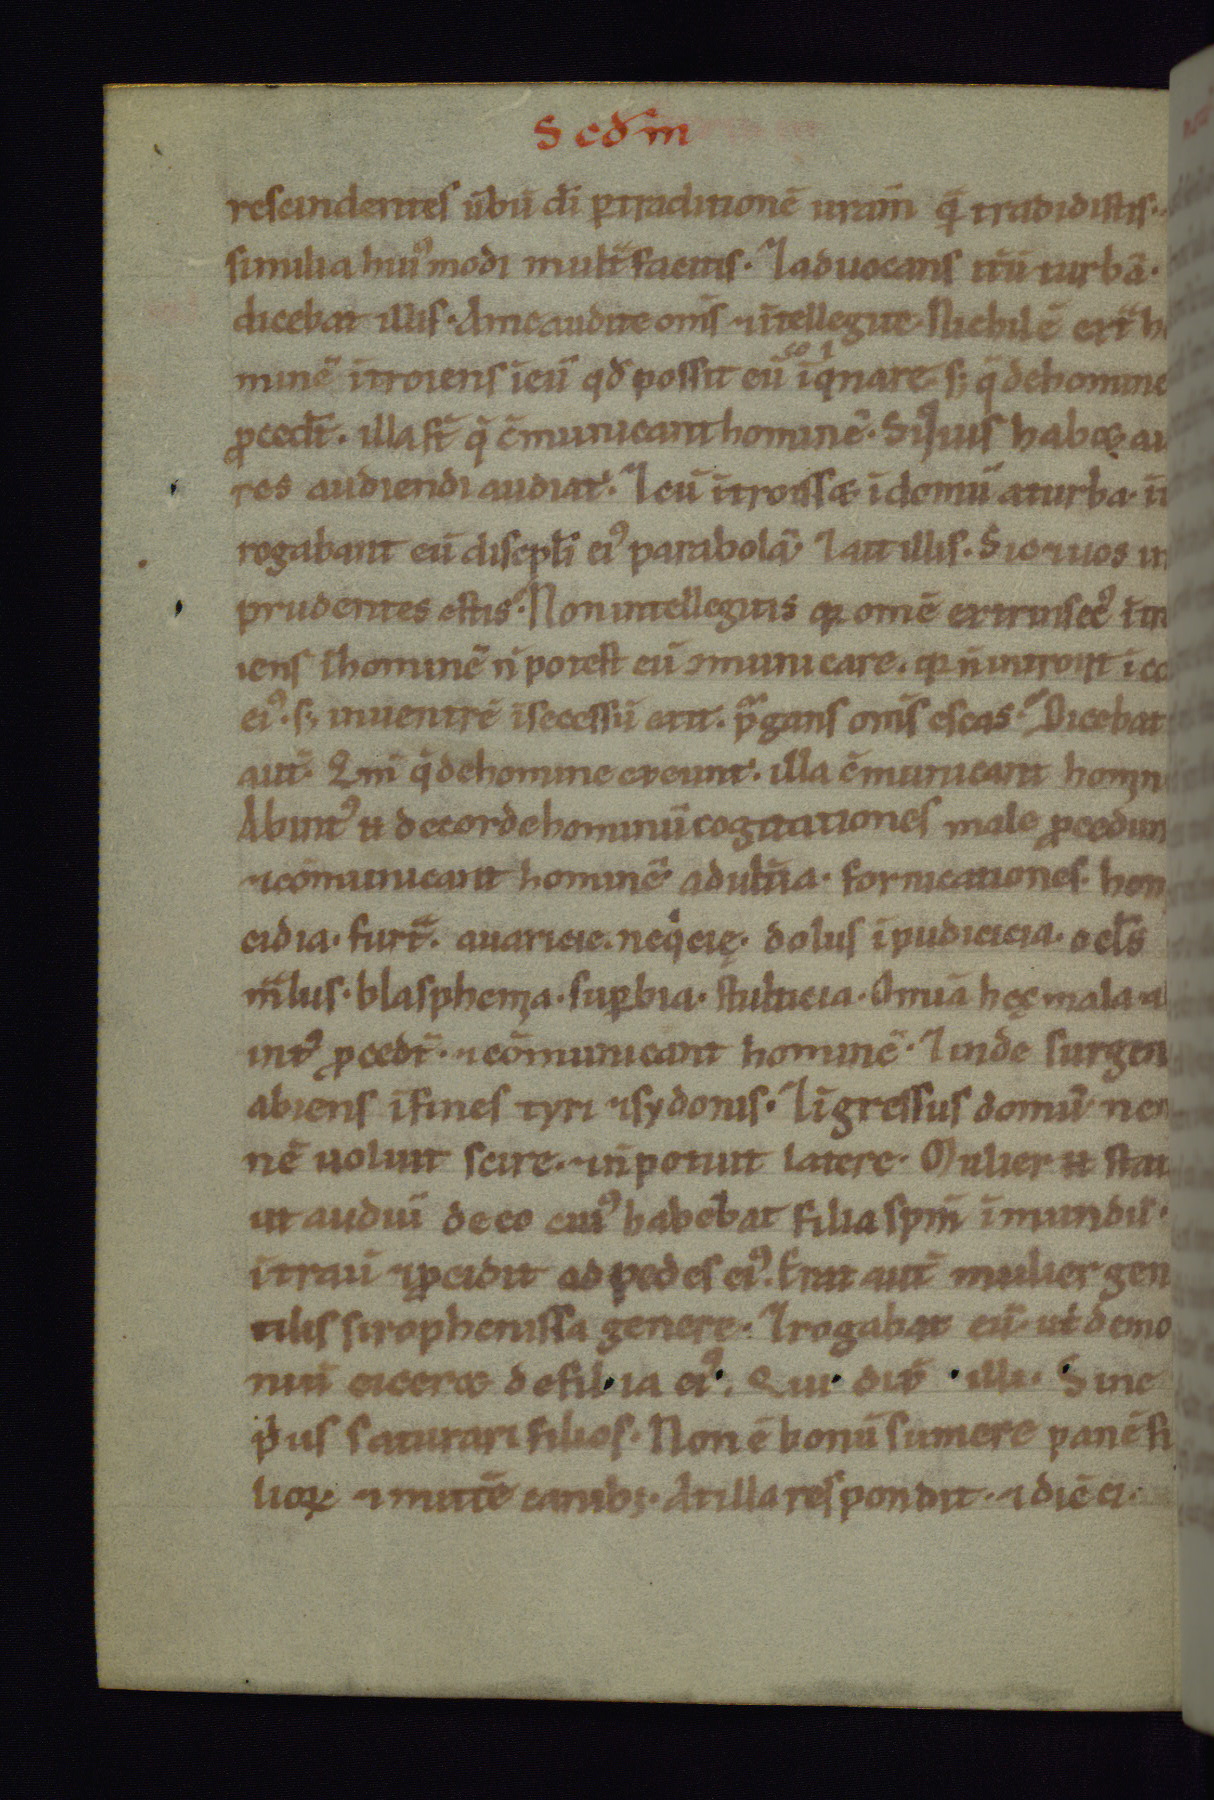 Scd̄m
rescindentes ūbū dī ꝑtraditionē urām̄ q̄ tradidistis·
similia huiꝰmodi multa facitis· ⁊aduocans itū turbā·
dicebat illis· Am̄c audite om̄s ⁊ ītellegite· Nichil ē ext̄ ho
minē ītroiens ī eū qd̄ possit eū īq̇nare· s; q̄ de homine
ꝓcedt̄· illa st̄ q̄ c̄municant hominē· Siq̇uis habeat au
res audiendi audiat· ⁊cū ītroissæ ī domū a turba· īt
rogabant eū discipłi eiꝰ parabolā· ⁊ait illis· Sic ⁊ uos in
prudentes estis· Non intellegitis qꝛ omē extrinsecꝰ īt
iens ī hominē n̄ potest eū ꝯmunicare· qꝛ n̄ introit ī co
eiꝰ· s; in uentrē ī secessū exit· p̄gans om̄s escas· Dicebat
aut̄· Qm̄ q̄ de homine exeunt· illa c̄municant homin
Ab intꝰ n̄ de corde hominū cogitationes male ꝓcedun
⁊ cōmunicant hominē· adult̄ia· fornicationes· hom
cidia· furt̄· auaricie· neq̇cię· dolus īpudicicia· ocłs
mālus· blasphemia· suꝑbia· stulticia· Omīa hęc mala a
intꝰ ꝓcedt̄· ⁊ cōmunicant hominē· ⁊inde surgen
abiens ī fines tyri ⁊ sydonis· ⁊īgressus domū nem
nē uoluit scire· ⁊ n̄ potuit latere· Mulier n̄ stat
ut audiui de eo cuiꝰ habebat filia sp̄m īmundū·
ītraui ⁊ ꝓcidit ad pedes eiꝰ· Erat aut̄ mulier gen
tilis sirophenissa genere· ⁊rogabat eū ut demo
niū eiceræ de filia eiꝰ· Qui dix̄ illi· Sine
pius saturari filios· Non ē bonū sumere panē fi
lioꝝ ⁊ mittē canibꝫ· At illa respondit· ⁊ dic̄ ei·